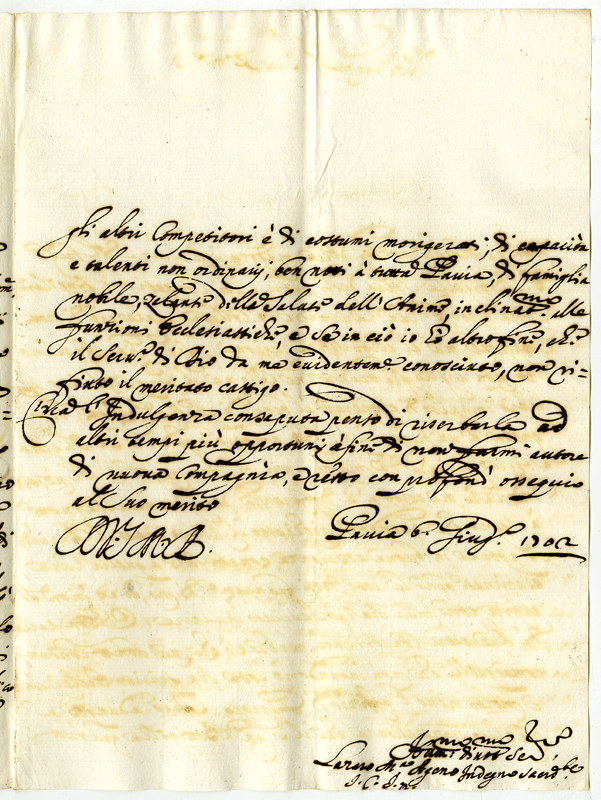 gli altri Competitori è di costumi morigerati, di capacità
e talenti non ordinarij, ben noti à tutta Pavia, di famiglia
nobile, zelante della Salute dell'Anime, inclinatmo alle
funtioni Ecclesiastiche, e se in ciò io hò altro fine, che
il Serv.o di Dio da me evidentem.e conosciuto, non ri=
fiuto il meritato castigo.
Circa l'Indulgenza consaputa penso di riserbarla ad
altri tempi più opportuni à fine di non farmi autore
di nuova Compagnia, e resto con profond.o ossequio
al Suo merito
Pavia 6. Giug.o 1702
Dev.mo
Lazaro Agono Indegno Sacerd.